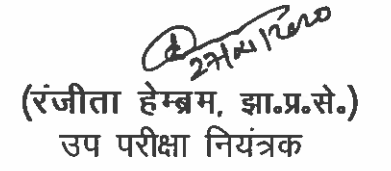 27/11/2020
(रंजीता हेम्ब्रम, झा॰प्र॰से॰)
उप परीक्षा नियंत्रक